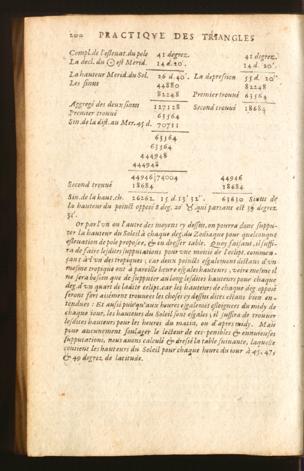 200 PRACTIQVE DES TRIANGLES
Compl. de l'esleuat. du pole 41 degrez. 41 degrez.
La decl. du ☉ est Merid. 14 d. 20'. 14 d. 20'.
La hauteur Merid. du Sol. 26 d. 40'. La depression 55 d. 20''
Les sinus 44880 82248
82248 Premier trouué 63564
Aggregé des deux sinus 127128 Second trouué 18684
Premier trouué 63564
Sin. de la dist. au Mer. 45 d. 70711
63564
63564
444948
444948
44946|74004 44946
Second trouué 18684 18684
Sin. de la haut. ch. 26262. 15 d. 13' 32''. 63630 Sinus de
la hauteur du point opposé 8 deg. 20' ♉, qui partant est 39 degrez
31'.
Or par l'vn ou l'autre des moyens cy dessus, on pourra donc supputer
la hauteur du Soleil à chaque deg. du Zodiaque pour quelconque
esleuation de pole proposée, & en dresser table. Quoy faisant, il suffira
de faire lesdites supputations pour vne moitié de l'eclipt. commençant
à l'vn des tropiques; car deux points esgalement distans d'vn
mesme tropique ont à pareille heure esgales hauteurs: voire mesme il
ne sera besoin que de supputer au long lesdites hauteurs pour chaque
deg. d'vn quart de ladite eclipt. car les hauteurs de chaque deg. opposé
seront fort aisément trouuées les choses cy dessus dites estans bien entenduës:
Et aussi puisqu'aux heures esgalement esloignees du midy de
chaque iour, les hauteurs du Soleil sont esgales; il suffira de trouuer
lesdites hauteurs pour les heures du matin, ou d'apres midy. Mais
pour aucunement soulager le lecteur de ces penibles & ennuieuses
supputations, nous auons calculé & dressé la table suiuante, laquelle
contient les hauteurs du Soleil pour chaque heure du iour à 45. 47.
& 49 degrez de latitude.